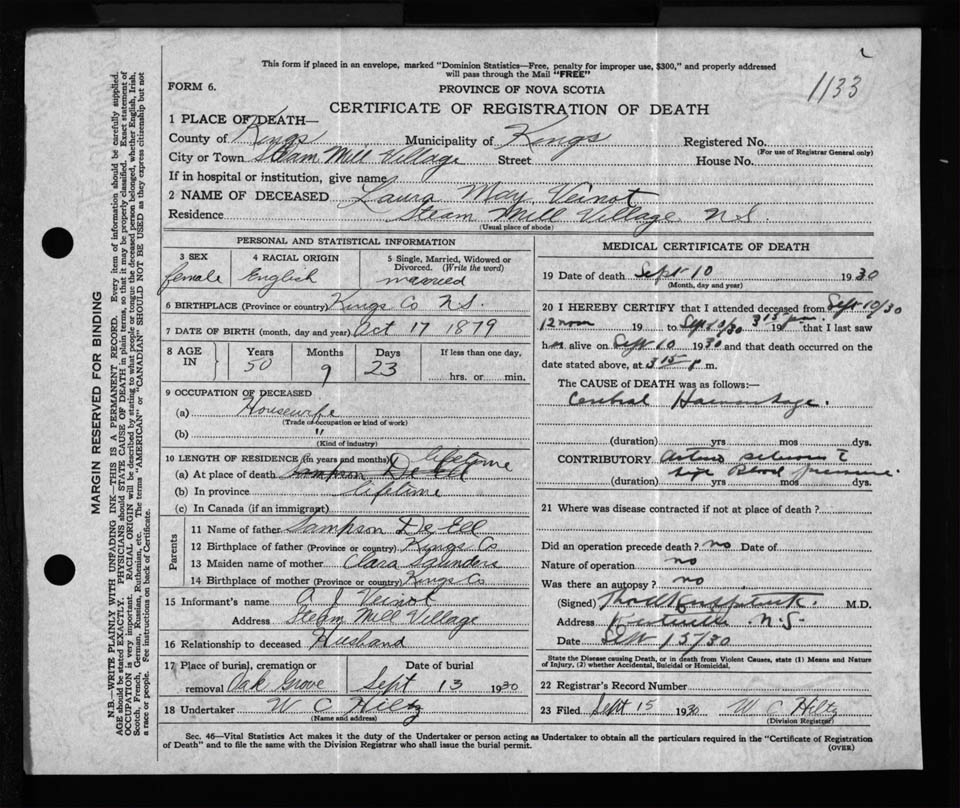 This form if placed in an envelope, marked "Dominion Statistics—Free, penalty for improper use, $300," and properly addressed
will pass through the Mail "FREE"
1133
FORM 6.
PROVINCE OF NOVA SCOTIA
CERTIFICATE OF REGISTRATION OF DEATH
1 PLACE OF DEATH—
County of Kings Municipality of Kings Registered No.
(For use of Registrar General only)
City or Town Steam Mill Village Street House No.
If in hospital or institution, give name
2 NAME OF DECEASED Laura May Veinot
Residence Steam Mill Village N.S.
(Usual place of abode)
PERSONAL AND STATISTICAL INFORMATION
3 SEX 4 RACIAL ORIGIN 5 Single, Married, Widowed or
Divorced. (Write the word)
female English married
6 BIRTHPLACE (Province or country) Kings Co N.S.
7 DATE OF BIRTH (month, day and year) Oct 17 1879
8 AGE IN Years Months Days If less than one day,
50 9 23 hrs. or min.
9 OCCUPATION OF DECEASED
(a) Housewife
(Trade or occupation or kind of work)
(b) "
(Kind of industry)
10 LENGTH OF RESIDENCE (in years and months) lifetime
(a) At place of death Sampson De Ell
(b) In province lifetime
(c) In Canada (if an immigrant)
Parents
11 Name of father Sampson De Ell
12 Birthplace of father (Province or country) Kings Co
13 Maiden name of mother Clara Saunders
14 Birthplace of mother (Province or country) Kings Co
15 Informant's name A J Veinot
Address Steam Mill Village
16 Relationship to deceased Husband
17 Place of burial, cremation or Date of burial
removal Oak Grove Sept 13 1930
18 Undertaker W C Hiltz
(Name and address)
MEDICAL CERTIFICATE OF DEATH
19 Date of death Sept 10 1930
(Month, day and year)
20 I HEREBY CERTIFY that I attended deceased from Sept 10/30
12 noon 19 to Sept 10/30 3 15 p.m. 19 that I last saw
her alive on Sept 10 1930 and that death occurred on the
date stated above, at 3 15 p m.
The CAUSE OF DEATH was as follows:—
Cerebral Haemorrhage.
(duration) yrs mos dys.
CONTRIBUTORY Arterio sclerosis &
high Blood pressure.
(duration) yrs mos dys.
21 Where was disease contracted if not at place of death?
Did an operation precede death? no Date of
Nature of operation no
Was there an autopsy? no
(Signed) M.D.
Address Kentville N.S.
Date Sept 15/30
State the Disease causing Death, or in death from Violent Causes, state (1) Means and Nature
of Injury, (2) whether Accidental, Suicidal or Homicidal.
22 Registrar's Record Number
23 Filed Sept 15 1930 W C Hiltz
(Division Registrar)
Sec. 46—Vital Statistics Act makes it the duty of the Undertaker or person acting as Undertaker to obtain all the particulars required in the "Certificate of Registration
of Death" and to file the same with the Division Registrar who shall issue the burial permit.
(OVER)
MARGIN RESERVED FOR BINDING
N.B.—WRITE PLAINLY WITH UNFADING INK—THIS IS A PERMANENT RECORD. Every item of information should be carefully supplied.
AGE should be stated EXACTLY. PHYSICIANS should STATE CAUSE OF DEATH in plain terms, so that it may be properly classified. Exact statement of
OCCUPATION is very important. RACIAL ORIGIN will be described by stating to what people or tongue the deceased person belonged, whether English, Irish,
Scotch, French, German, Russian, Ruthenian, etc. The terms "AMERICAN" or "CANADIAN" SHOULD NOT BE USED as they express citizenship but not
a race or people. Fee instructions on back of Certificate.